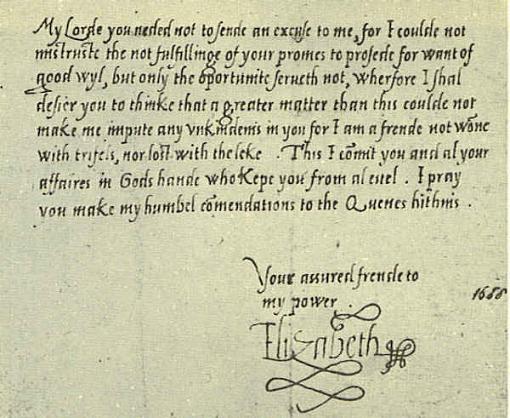 My Lorde you neded not to sende an excuse to me, for I coulde not
mistruste the not fulfillinge of your promes to prosede for want of
good wyl, but only the oportunite serueth not, wherfore I shal
desier you to thinke that a greater matter than this coulde not
make me impute any vnkindenis in you for I am a frende not wone
with trifels, nor lost with the leke . This I comit you and al your
affaires in Gods hande who kepe you from al euel . I pray
you make my humbel comendations to the Quenes hithnis .
Your assured frende to
my power .
Elizabeth